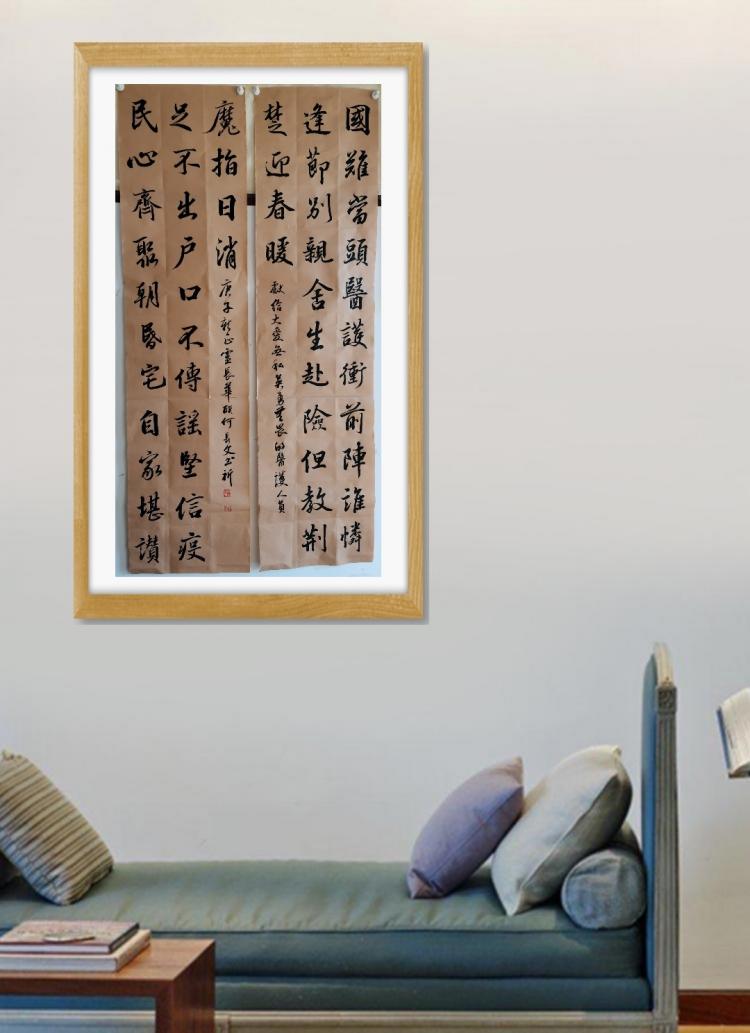 國難當頭醫護衝前陣誰憐
逢節別親舍生赴險但教荆
楚迎春暖
獻給大愛無私英勇無畏的醫護人員
民心齊聚朝昏宅自家堪讚
足不出户口不傳謠堅信疫
魔指日消
庚子新正長華联何長文书